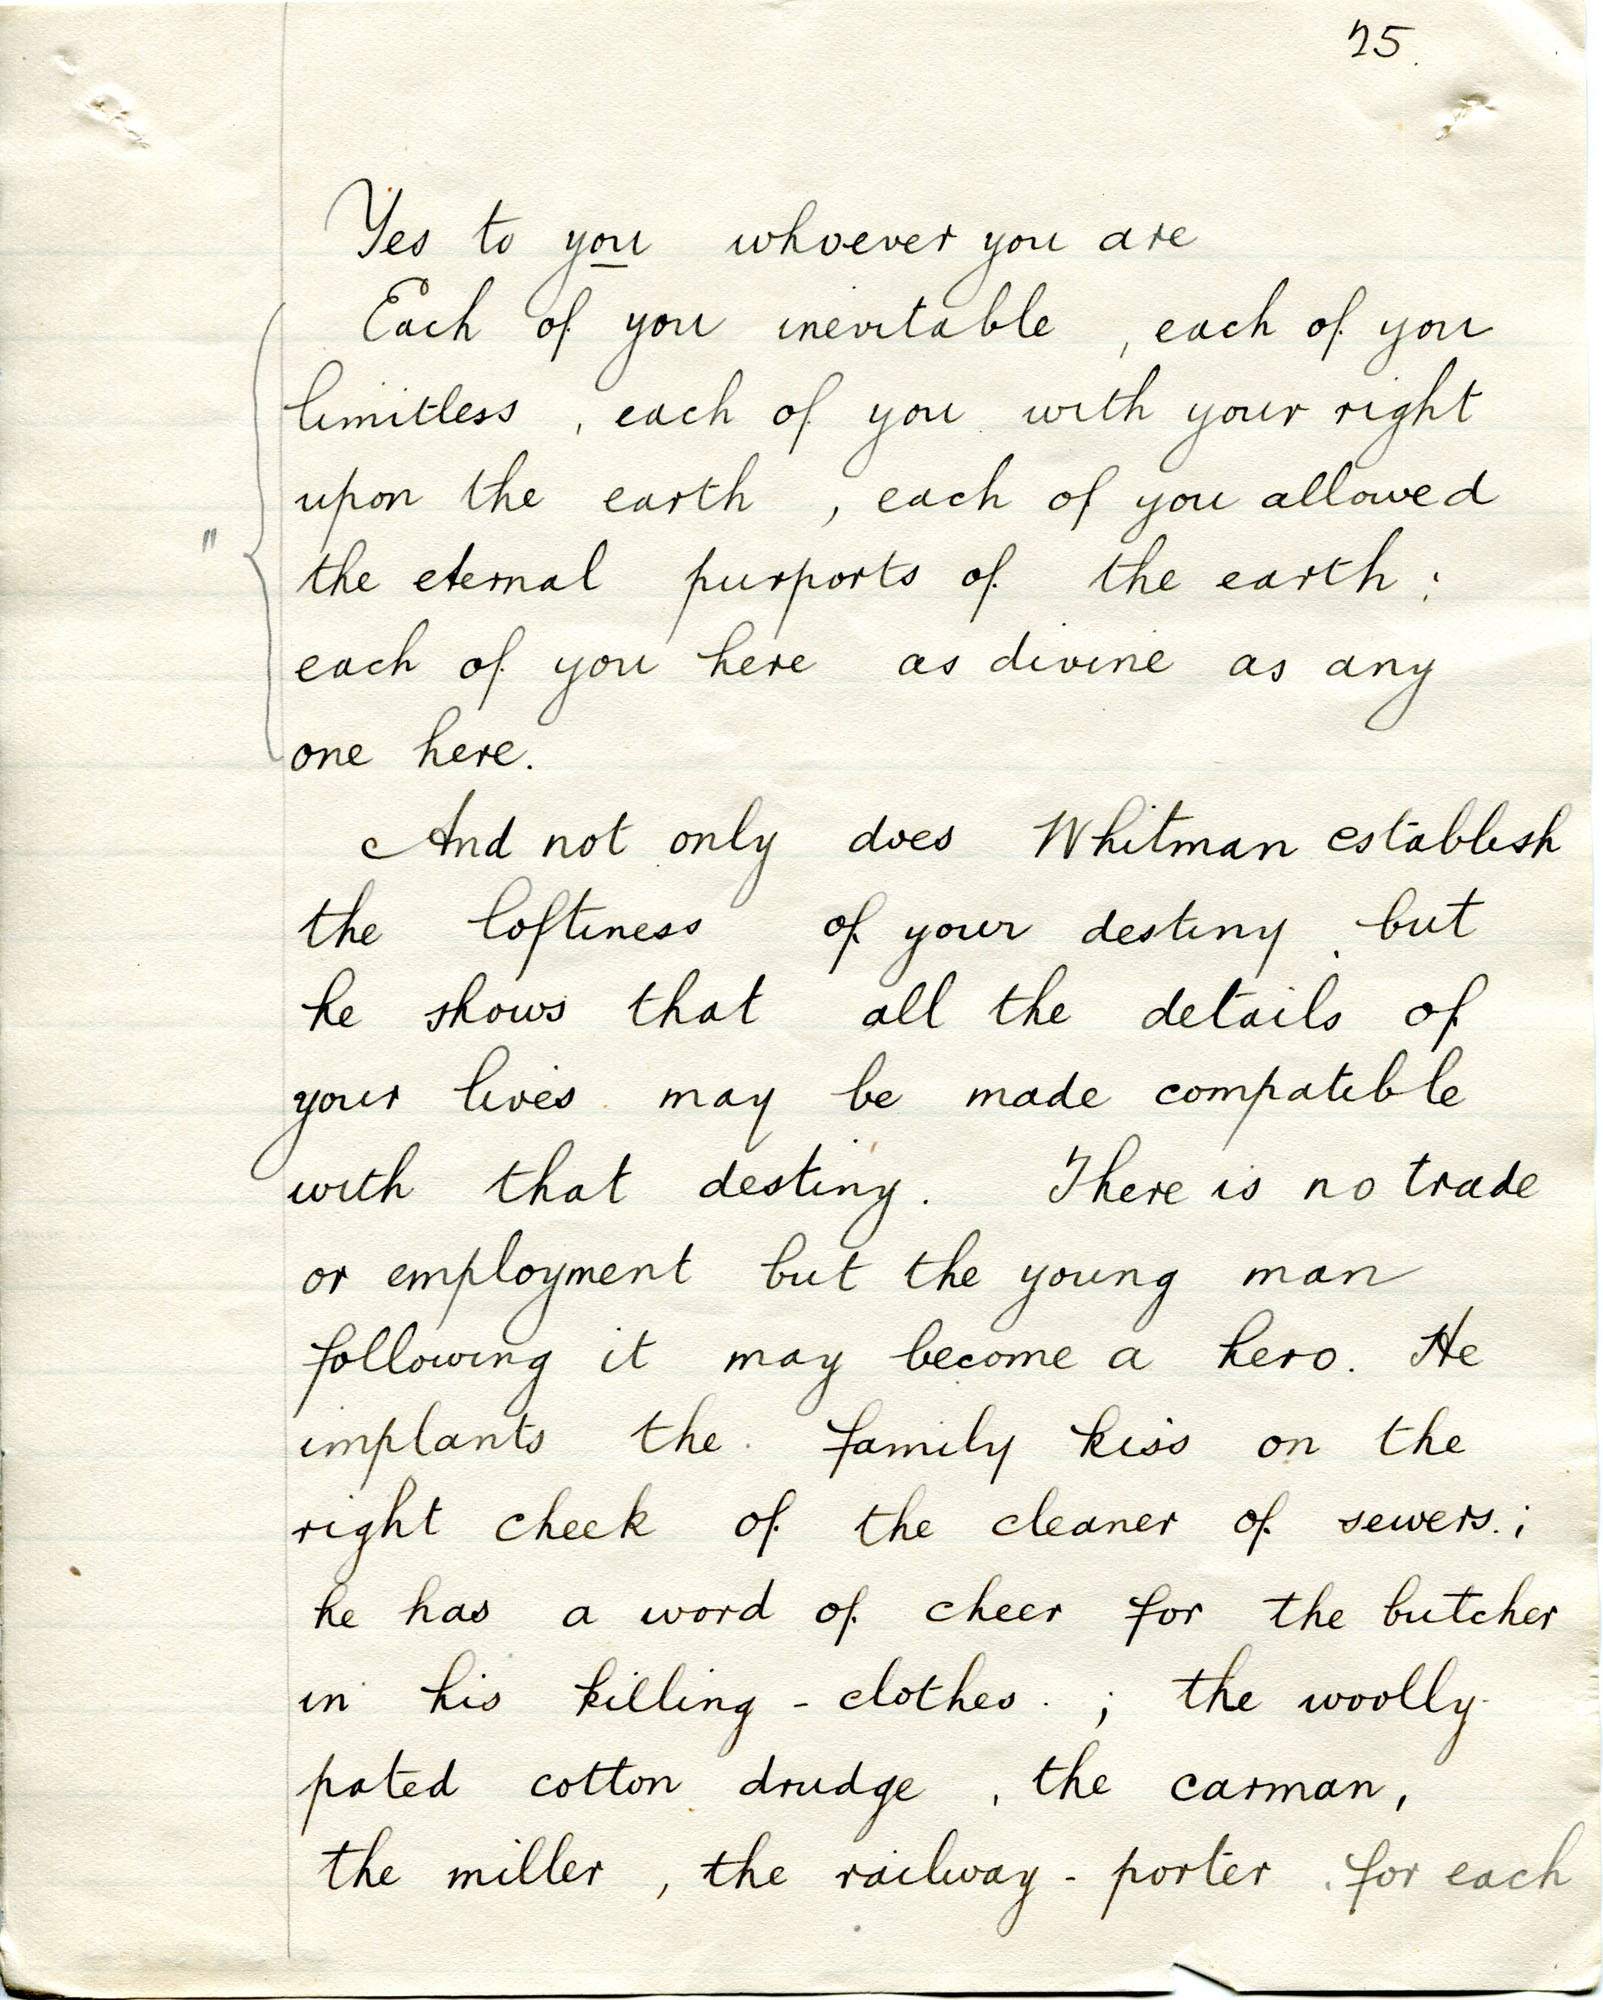 25.
Yes to you whoever you are
Each of you inevitable, each of you
limitless, each of you with your right
upon the earth, each of you allowed
the eternal purports of the earth;
each of you here as divine as any
one here.
And not only does Whitman establish
the loftiness of your destiny, but
he shows that all the details of
your lives may be made compatible
with that destiny. There is no trade
or employment but the young man
following it may become a hero. He
implants the family kiss on the
right cheek of the cleaner of sewers.;
he has a word of cheer for the butcher
in his killing-clothes.; the woolly-
pated cotton drudge, the carman,
the miller, the railway-porter, for each